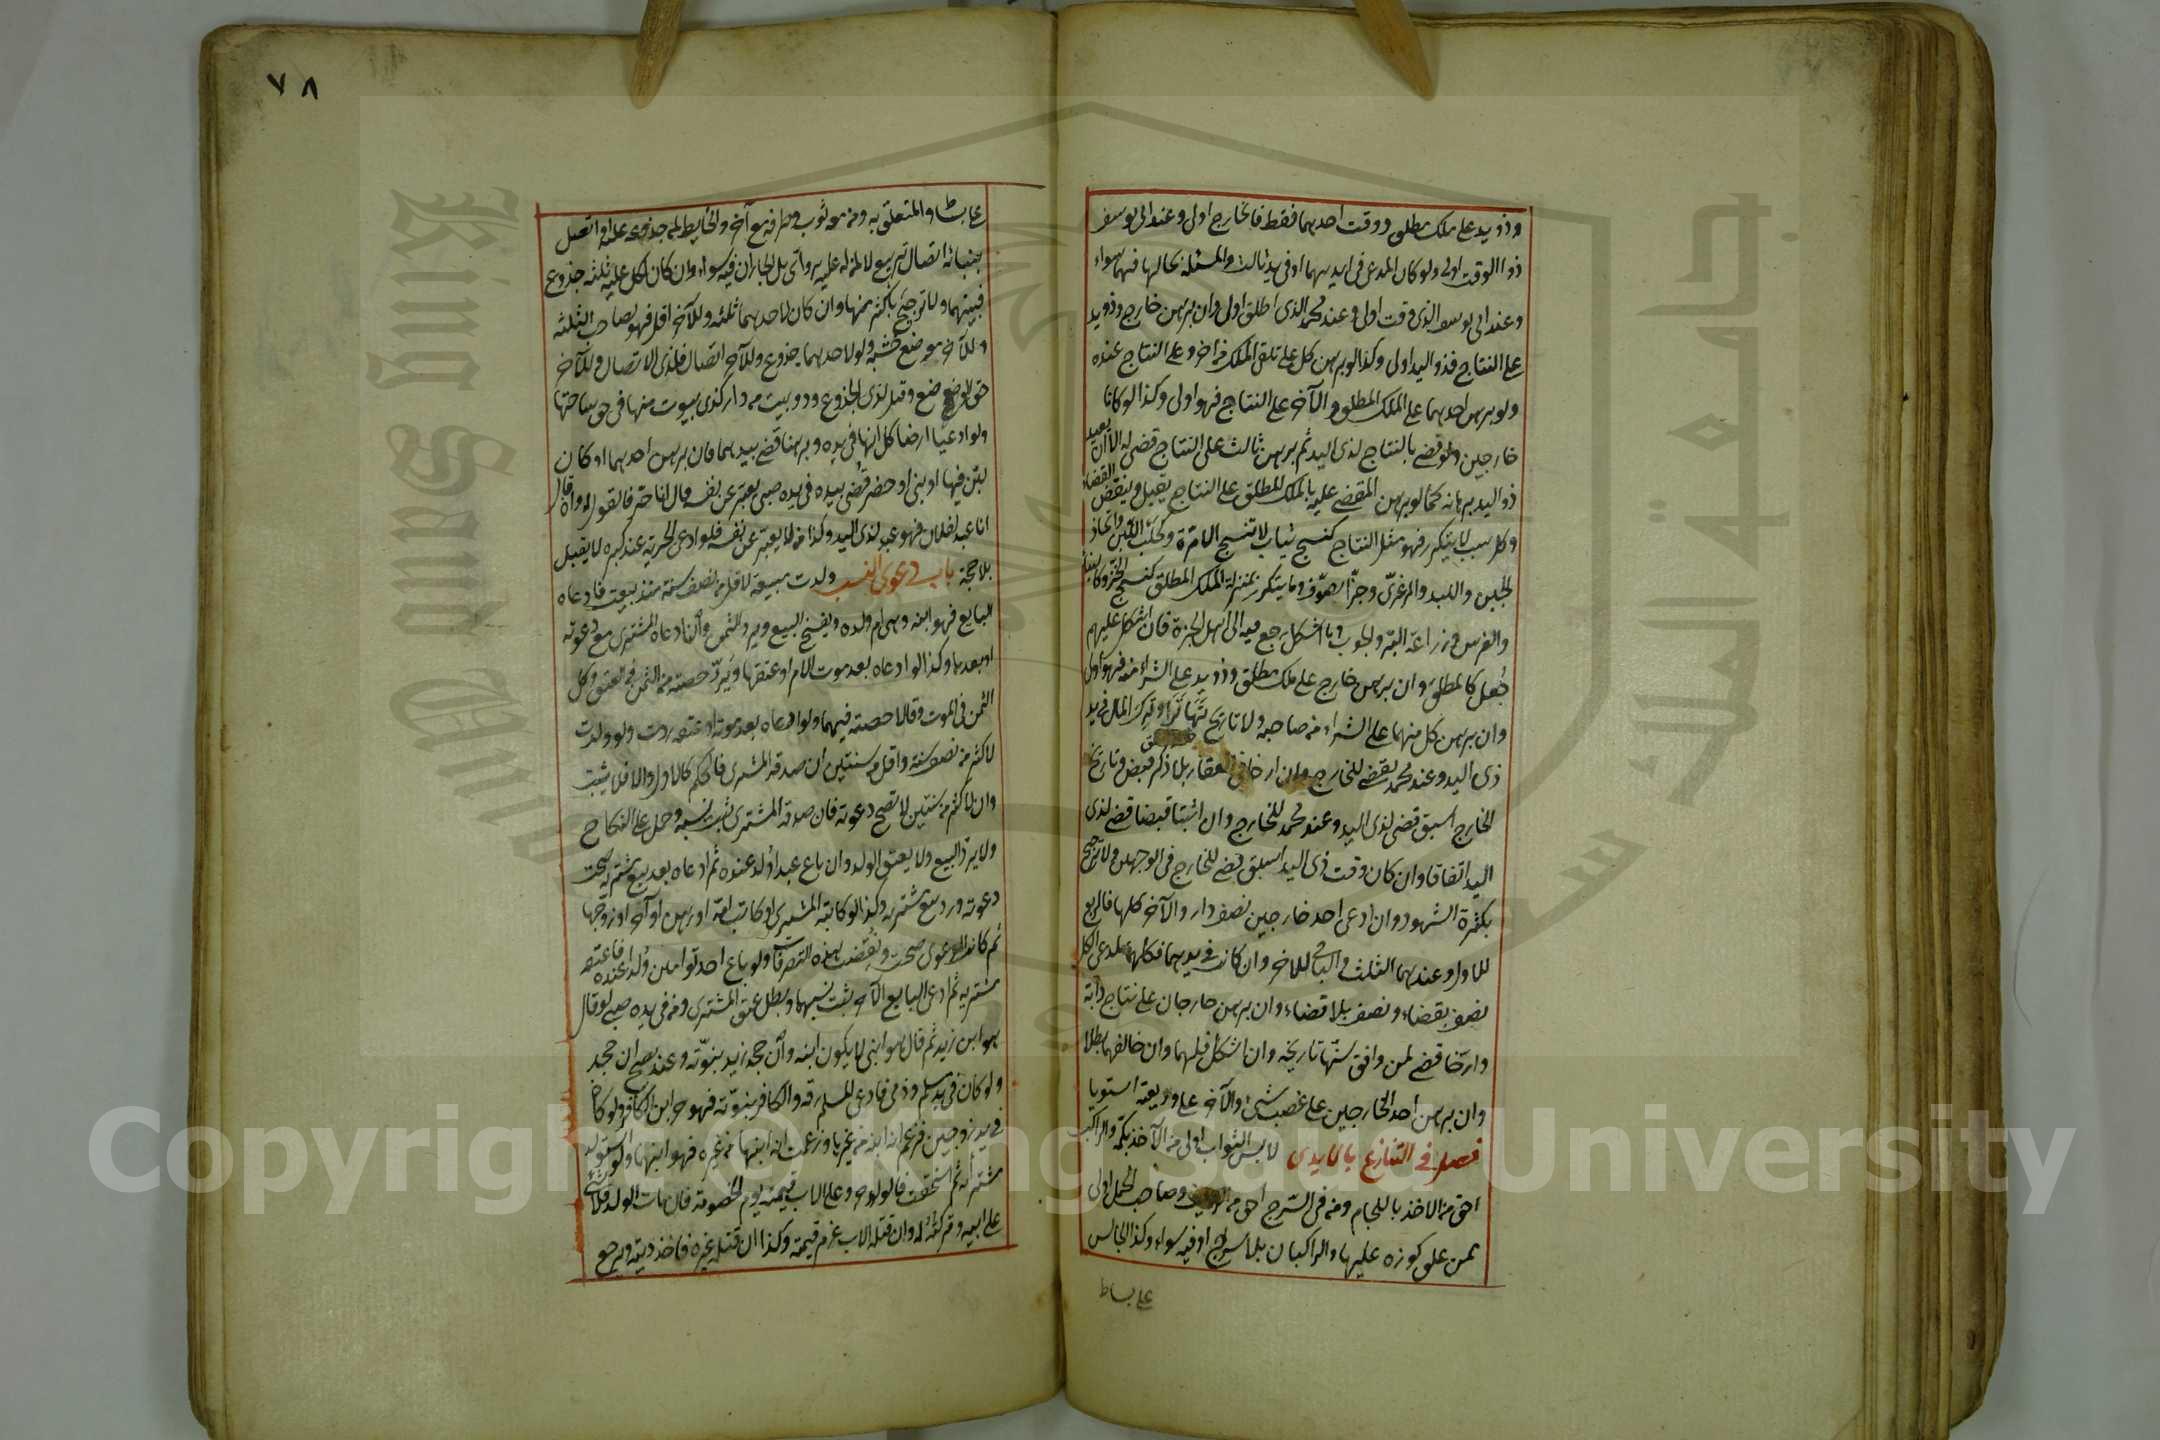 ٧٨
وذو يد على ملك مطلق ووقت احدهما فقط فالخارج اولى وعند ابى يوسف
ذو الوقت اولى ولو كان المدعى فى ايديهما او فى يد ثالث والمسئلة بحالها فهما سواء
وعند ابى يوسف الذى وقت اولى وعند محمد الذى اطلق اولى وان برهن خارج وذو يد
على النتاج فذو اليد اولى وكذا لو برهن كل على تلقى الملك من آخر وعلى النتاج عنده
ولو برهن احدهما على الملك المطلق والآخر على النتاج فهو اولى وكذا لو كانا
خارجين ولو قضى بالنتاج لذى اليد ثم برهن ثالث على النتاج قضى له الا ان يعيد
ذو اليد برهانه كما لو برهن المقضى عليه بالملك المطلق على النتاج يقبل وينقض القضاء
وكل سبب لا يتكرر فهو مثل النتاج كنسج ثياب لا تنسج الا مرة وكحلب اللبن واتخاذ
الجبن واللبد والمرعزّى وجزّ الصوف وما يتكرر بمنزلة الملك المطلق كنسج الخز وكالبناء
والغرس وزراعة البر والحبوب وما اشكل يرجع فيه الى اهل الخبرة فان اشكل عليهم
جُعل كالمطلق وان برهن خارج على ملك مطلق وذو يد على الشراء منه فهو اولى
وان برهن كل منهما على الشراء من صاحبه ولا تاريخ تهاترا وترك المال فى يد
ذى اليد وعند محمد يقضى للخارج وان ارخا فى العقار بلا ذكر قبض وتاريخ
الخارج اسبق قضى لذى اليد وعند محمد للخارج وان اثبتا قبضا قضى لذى
اليد اتفاقا وان كان وقت ذى اليد اسبق قضى للخارج فى الوجهين ولا ترجيح
بكثرة الشهود وان ادعى احد خارجين نصف دار والآخر كلها فالربع
للاول وعندهما الثلث والباقى للآخر وان كانت فى يدهما فكلها لمدعى الكل
نصف بقضاء ونصف بلا قضاء وان برهن خارجان على نتاج دابة
وارّخا قضى لمن وافق سنّها تاريخه وان اشكل فلهما وان خالفهما بطلا
وان برهن احد الخارجين على غصب شىء والآخر على وديعته استويا
فصل فى التنازع بالايدى لابس الثواب اولى من الآخذ بكمه والراكب
احق من الآخذ باللجام ومن فى السرج احق من وصاحب الحمل اولى
ممن علق كوزه عليها والراكبان بلا سرج او فيه سواء وكذا الجالس
على بساط
على بساط والمتعلق به ومن معه ثوب وطرفه مع آخر والحايط لمن جذوعه عليه او اتصل
ببنائه اتصال تربيع لا لمن له عليه هرادى بل الجاران فيه سواء وان كان لكل عليه ثلثة جذوع
فبينهما ولا ترجيح باكثر منها وان كان لاحدهما ثلثه وللآخر اقل فهو لصاحب الثلثه
وللآخر موضع خشبه ولو لاحدهما جذوع وللآخر اتصال فلذى الاتصال وللآخر
حق الوضع وقيل لذى الجذوع وذو بيت من دار كذى بيوت منها فى حق ساحتها
ولو ادعيا ارضا كل انها فى يده وبرهنا قضى بيدهما فان برهن احدهما او كان
لبّن فيها او بنى او حضر قضى بيده فى يده صبى يعبر عن نفسه قال انا حرّ فالقول له ولو قال
انا عبد لفلان فهو عبد لذى اليد وكذا من لا يعبّر عن نفسه فلو ادعى الحرية عند كبره لا يقبل
بلا حجة باب دعوى النسب ولدت مبيعة لاقل من نصف سنة منذ بيعت فادعاه
البايع فهو ابنه وهى ام ولده ويفسخ البيع ويرد الثمن وان ادعاه المشترى مع دعوته
او بعدها وكذا لو ادعاه بعد موت الام او عتقها ويُردّ حصته من الثمن فى العتق وكل
الثمن فى الموت وقالا حصته فيهما ولو ادعاه بعد موته او عتقه ردت ولو ولدت
لاكثر من نصف سنة واقل من سنتين ان صدقه المشترى فالحكم كالاول والا فلا يثبت
وان لاكثر من سنتين لا تصح دعوته فان صدقه المشترى ثبت نسبه وحمل على النكاح
ولا يرد البيع ولا يعتق الولد وان باع عبدا وُلد عنده ثم ادعاه بعد بيع مشتريه صحت
دعوته ورد بيع مشتريه وكذا لو كاتبه المشترى او كاتب امه او رهن او آجر او زوجها
ثم كانت الدعوى صحت ونُقضت هذه التصرفات ولو باع احد توامين وُلد عنده فاعتقه
مشتريه ثم ادعى البايع الآخر يثبت نسبهما وبطل عتق المشترى ومن فى يده صبى لو قال
هو ابن زيد ثم قال هو ابنى لا يكون ابنه وان جحد زيد بنوّته وعندهما يصح ان جحد
ولو كان فى يد مسلم وذمى فادعى المسلم رقه والكافر بنوّته فهو حر ابن الكافر ولو كان
فى يد زوجين فزعم انه ابنه من غيرها وزعمت انه ابنها من غيره فهو ابنهما ولو استولد
مشتراة ثم استحقت فالولد حر وعلى الاب قيمته يوم الخصومة فان مات الولد فلا شىء
على ابيه وتركته له وان قتله الاب غرم قيمته وكذا ان قتله غيره فاخذ ديته ويرجع
Copyright © King Saud University
King Saud University
جامعة الملك سعود